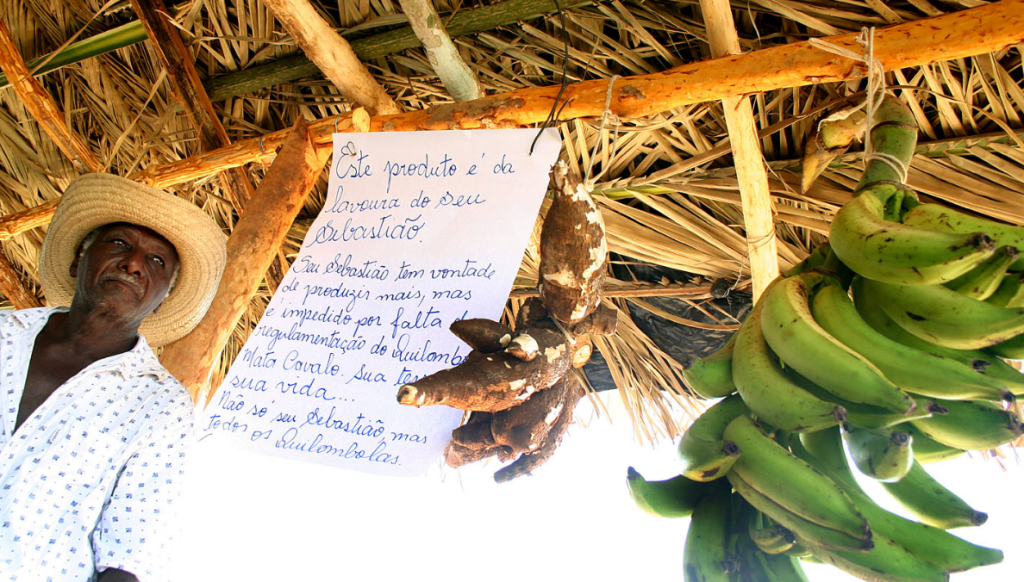 Este produto é da
lavoura do seu
Sebastião.
Seu Sebastião tem vontade
de produzir mais, mas
é impedido por falta
regulamentação do Quilombo
Mata Cavalo. Sua
sua vida...
Não só seu Sebastião mas
todos os Quilombolas.